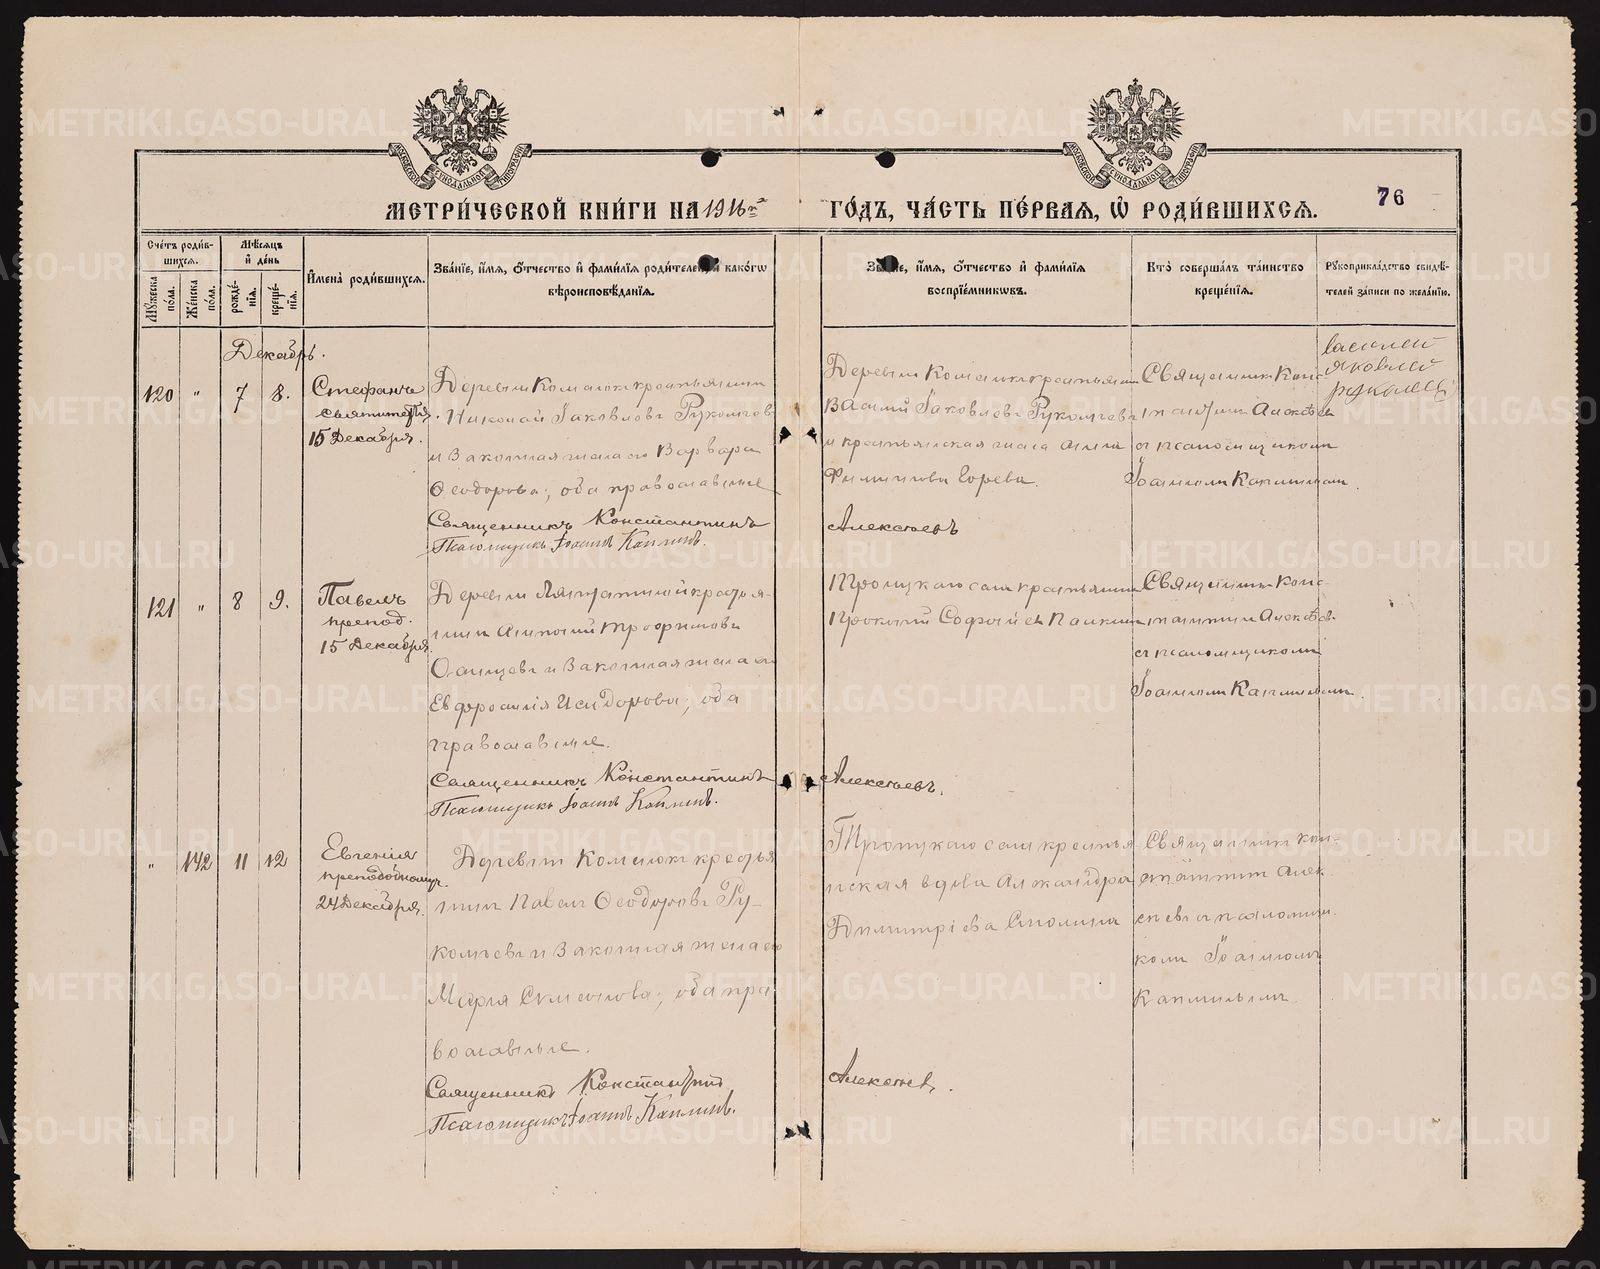 76
МЕТРИ́ЧЕСКОЙ КНИ́ГИ НА 1916 го́дъ, ча́сть пе́рвая, ѡ роди́вшихся.
Сче́тъ роди́вшихся.
Мѣ́сяцъ и де́нь
Му́жеска по́ла.
Же́нска по́ла.
рожде́нїя.
креще́нїя.
Имена̀ роди́вшихся.
Зва́нїе, и́мя, о́тчество и фами́лїя роди́телей и како́гѡ вѣроисповѣ́данїя.
Зва́нїе, и́мя, о́тчество и фами́лїя воспрїе́мникѡвъ.
Кто̀ соверша́лъ та́инство креще́нїя.
Рꙋкоприкла́дство свидѣ́телей за́писи по жела́нїю.
Декабрь.
120 " 7 8.
Стефанъ
святителя
15 Декабря.
Деревни крестьянинъ
Николай Іаковлевъ
и законная жена его Варвара
Ѳеодорова; оба православные
Священникъ Константинъ Алексѣевъ
Псаломщикъ Іоаннъ Каплинъ.
Деревни крестьянинъ
Василий Іаковлевъ
и крестьянская жена Анна
Филипова
Священникъ Конс-
тантинъ Алексѣевъ
съ псаломщикомъ
Іоанномъ Каплинымъ.
Василий
Яковлев
121 " 8 9.
Павелъ
препод.
15 Декабря.
Деревни крестья-
нинъ Трофимовъ
и законная жена его
Евфросинія Исидорова; оба
православные.
Священникъ Константинъ Алексѣевъ.
Псаломщикъ Іоаннъ Каплинъ.
Троицкаго села крестьянинъ
Прокопий
Священникъ Конс-
тантинъ Алексѣевъ
съ псаломщикомъ
Іоанномъ Каплинымъ.
" 142 11 12
Евгенія
преподобномуч.
24 Декабря.
Деревни крестья-
нинъ Павелъ Ѳеодоровъ Ру-
и законная жена его
Марія Симеонова; оба пра-
вославные.
Священникъ Константинъ Алексѣевъ.
Псаломщикъ Іоаннъ Каплинъ.
Троицкаго села крестья-
нская вдова Александра
Димитріева
Священникъ Кон-
стантинъ Алек-
сѣевъ съ псаломщи-
комъ Іоанномъ
Каплинымъ.
METRIKI.GASO-URAL.RU